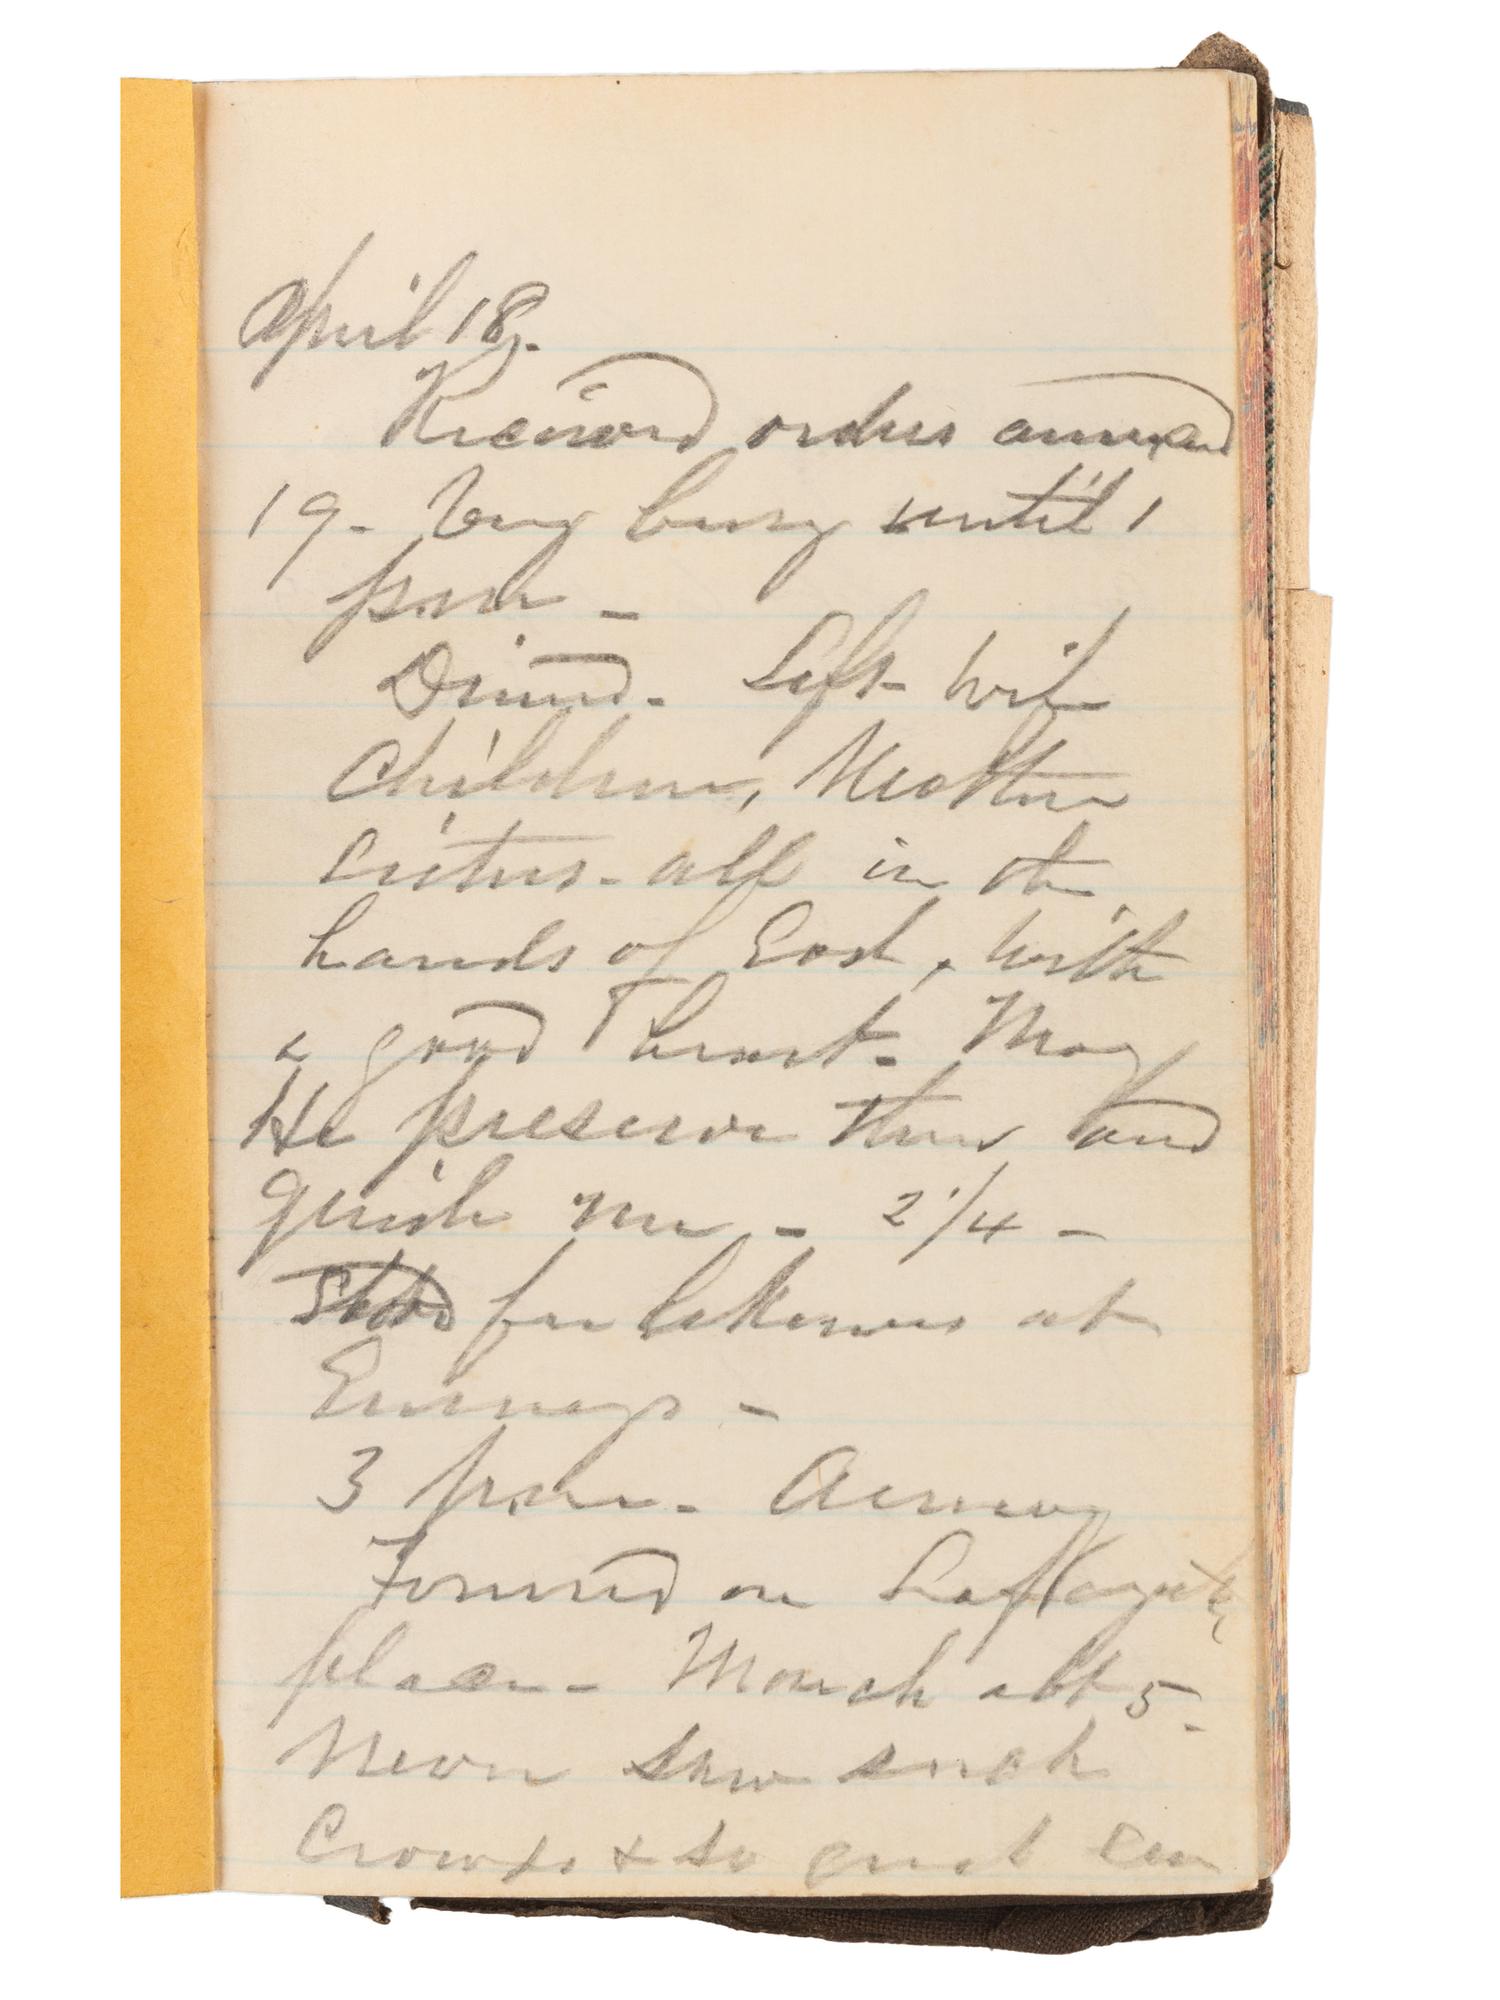 April 18,
Received orders annexed
19. Very busy until 1
p.m. -
Dined. Left wife
Children, Mother
sisters - all in the
hands of God, with
a good heart. May
He preserve them and
guide me - 2 1/4 -
for at
3 p.m. - Armory
Formed on Lafayette
place - March abt 5 -
Never saw such
Crowds & so great